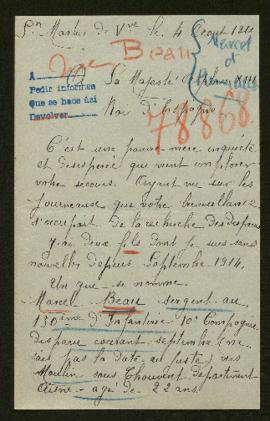 St Mars de Vve le 4 Aout 191
Beau
Marcel
A
Pedir informes
Que se hace así
Devolver
A Sa Majesté Alphonse XIII
Roi d'Espagne
78868
C'est une pauvre mère inquiète
et désespérée que vient implorer
votre secours. Ayant vue sur les
journeaux que votre bienveillance
s'occupait de la recherche des disparus
J'ai deux fils dont je suis sans
nouvelles depuis Septembre 1914.
Un que se nomme
Marcel Beau sergent au
130ème d'Infanterie 10e Compagnie
disparu courant septembre (ne
sais pas la date au juste) vers
Moulin sous Thouvent departement
Aisne - age de 22 ans